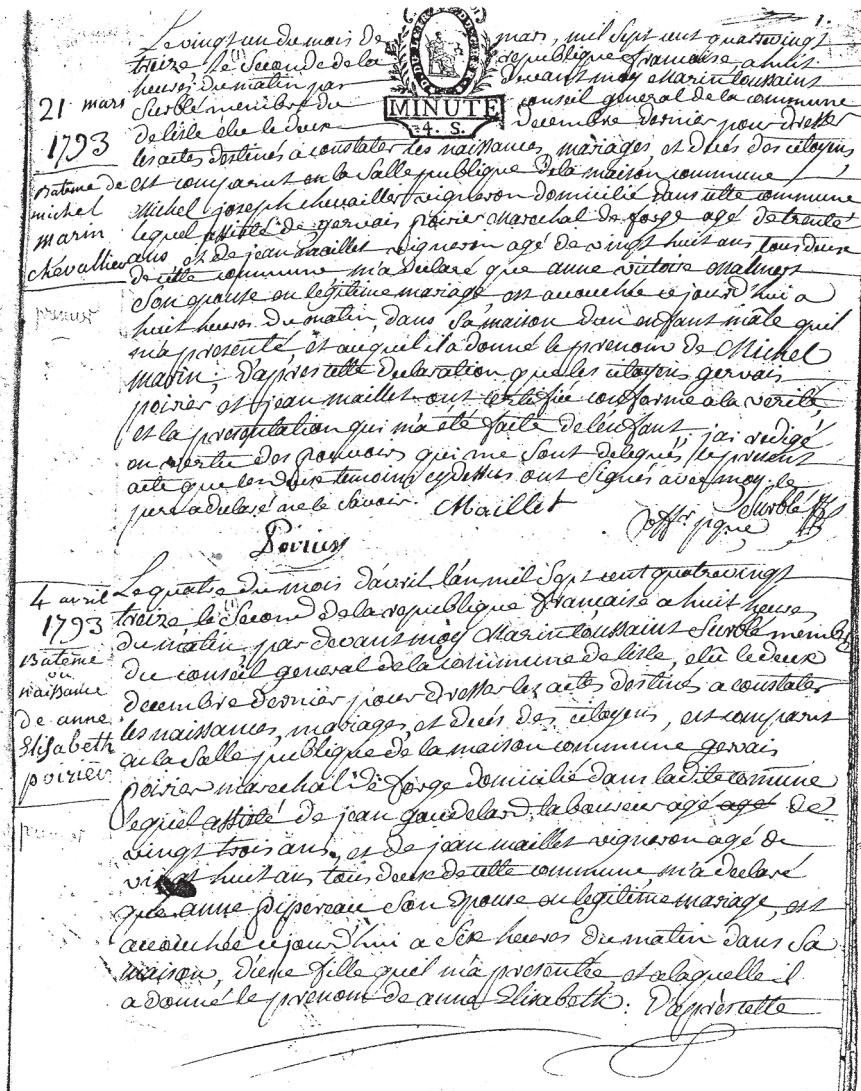 1.
Le vingt un du mois de mars, mil Sept cent quatrevingt
treize le Seconde de la republique francaise, a huit
heures du matin par devant moy Marin toussaint
Surblé membre du conseil general de la commune
de lisle elu le deux decembre dernier pour dresser
les actes destinés a constater les naissances, mariages et decés des citoyens,
est comparut en la Salle publique de la maison commune
Michel joseph chevallier vigneron domicilié dans cette commune
lequel assisté de gervais poirier marechal de forge agé de trente
ans et de jean maillet vigneron agé de vingt huit ans tous deux
de cette commune m'a declaré que anne victoire
Son epouse en legitime mariage est accouchée ce jourd'hui a
huit heures du matin, dans Sa maison d'un enfant mâle quil
m'a presenté et auquel il a donné le prenom de Michel
marin; d'après cette declaration que les citoyens gervais
poirier et jean maillet ont certifié conforme a la verité,
et la presentation qui m'a été faite de l'enfant, j'ai redigé
en vertu des pouvoirs qui me Sont delegués, le present
acte que les deux temoins cydessus ont Signés avec moy, le
pere a declaré ne le Savoir. Maillet Surblé
off. pque
Poirier
MINUTE
4. S.
21 mars
1793
Batême de
michel
marin
chevallier
premier
Le quatre du mois d'avril l'an mil Sept cent quatrevingt
treize le Second de la republique francaise a huit heures
du matin par devant moy Marin toussaint Surblé membre
du conseil general de la commune de lisle, elû le deux
decembre dernier pour dresser les actes destinés a constater
les naissances, mariages, et decés des citoyens, est comparut
en la Salle publique de la maison commune gervais
poirier marechal de forge domicilié dans la dite comune
lequel assisté de jean gaudelard laboureur agé age de
vingt trois ans, et de jean maillet vigneron agé de
vingt huit ans tous deux de cette commune m'a declaré
que anne pipereau Son Epouse en legitime mariage, est
accouchée ce jourd'hui a Six heures du matin dans Sa
maison, d'une fille quil m'a presentée et a laquelle il
a donné le prenom de anne Elisabeth: D'après cette
4 avril
1793
Batême
ou
naissance
de anne
Elisabeth
poirier
premier